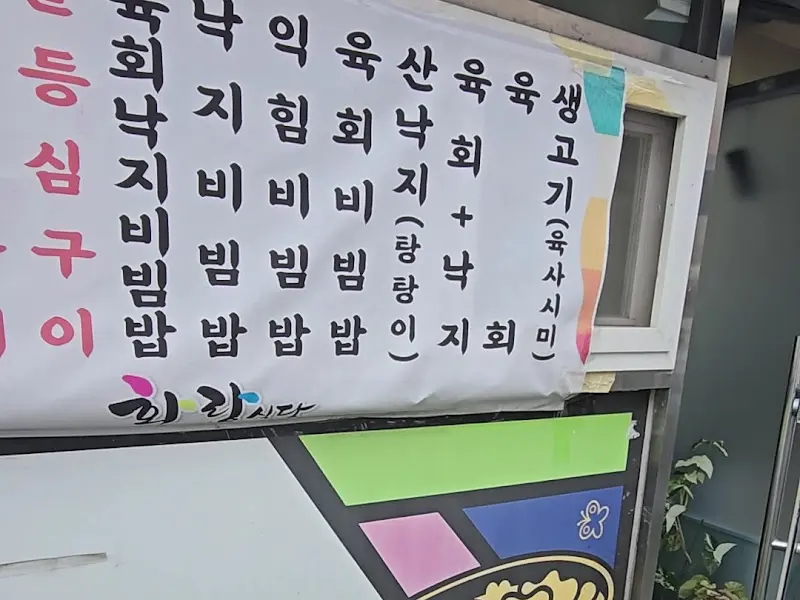 생고기(육사시미)
육회
육회+낙지
산낙지(탕탕이)
육회비빔밥
익힘비빔밥
낙지비빔밥
육회낙지비빔밥
등심구이
화랑식당